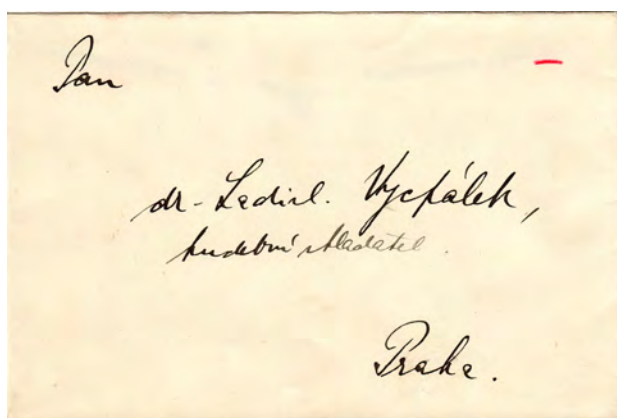 Pan
dr. Ladisl. Vycpálek,
hudební skladatel.
Praha.